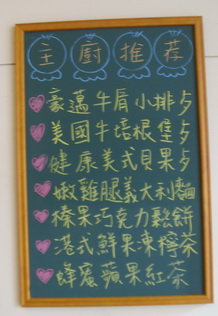 主廚推荐
豪邁牛肩小排歺
美國牛培根堡歺
健康美式貝果歺
嫩雞腿義大利麵
榛果巧克力鬆餅
港式鮮果凍檸茶
蜂蜜蘋果紅茶